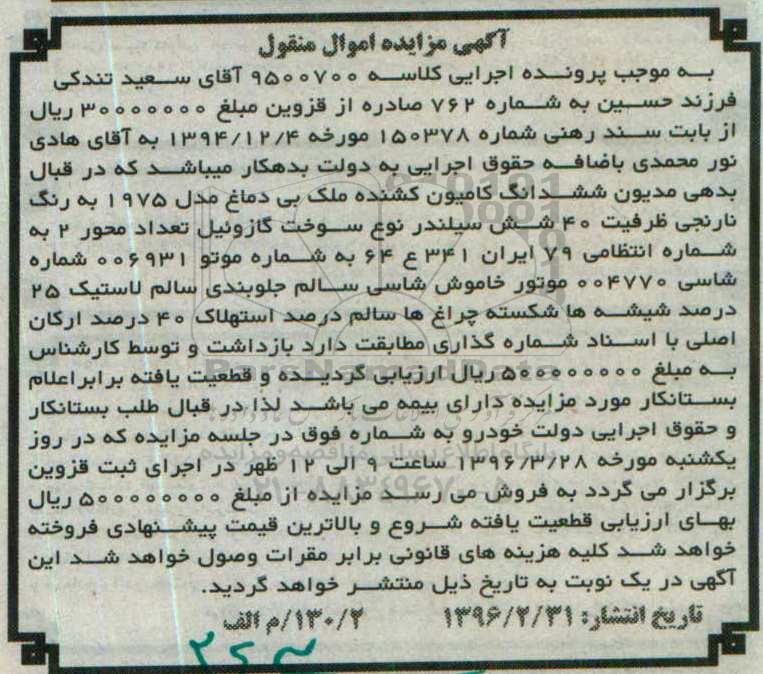 آگهی مزایده اموال منقول
به موجب پرونده اجرایی کلاسه ۹۵۰۰۷۰۰ آقای سعید تندکی
فرزند حسین به شماره ۷۶۲ صادره از قزوین مبلغ ۳۰۰۰۰۰۰۰ ریال
از بابت سند رهنی شماره ۱۵۰۳۷۸ مورخه ۱۳۹۴/۱۲/۴ به آقای هادی
نور محمدی باضافه حقوق اجرایی به دولت بدهکار میباشد که در قبال
بدهی مدیون ششدانگ کامیون کشنده ملک بی دماغ مدل ۱۹۷۵ به رنگ
نارنجی ظرفیت ۴۰ شش سیلندر نوع سوخت گازوئیل تعداد محور ۲ به
شماره انتظامی ۷۹ ایران ۳۴۱ ع ۶۴ به شماره موتو ۰۰۶۹۳۱ شماره
شاسی ۰۰۴۷۷۰ موتور خاموش شاسی سالم جلوبندی سالم لاستیک ۲۵
درصد شیشه ها شکسته چراغ ها سالم درصد استهلاک ۴۰ درصد ارکان
اصلی با اسناد شماره گذاری مطابقت دارد بازداشت و توسط کارشناس
به مبلغ ۵۰۰۰۰۰۰۰۰ ریال ارزیابی گردیده و قطعیت یافته برابر اعلام
بستانکار مورد مزایده دارای بیمه می باشد لذا در قبال طلب بستانکار
و حقوق اجرایی دولت خودرو به شماره فوق در جلسه مزایده که در روز
یکشنبه مورخه ۱۳۹۶/۳/۲۸ ساعت ۹ الی ۱۲ ظهر در اجرای ثبت قزوین
برگزار می گردد به فروش می رسد مزایده از مبلغ ۵۰۰۰۰۰۰۰۰ ریال
بهای ارزیابی قطعیت یافته شروع و بالاترین قیمت پیشنهادی فروخته
خواهد شد کلیه هزینه های قانونی برابر مقرات وصول خواهد شد این
آگهی در یک نوبت به تاریخ ذیل منتشر خواهد گردید.
تاریخ انتشار: ۱۳۹۶/۲/۳۱ ۱۳۰/۲/م الف
ParsNamadData